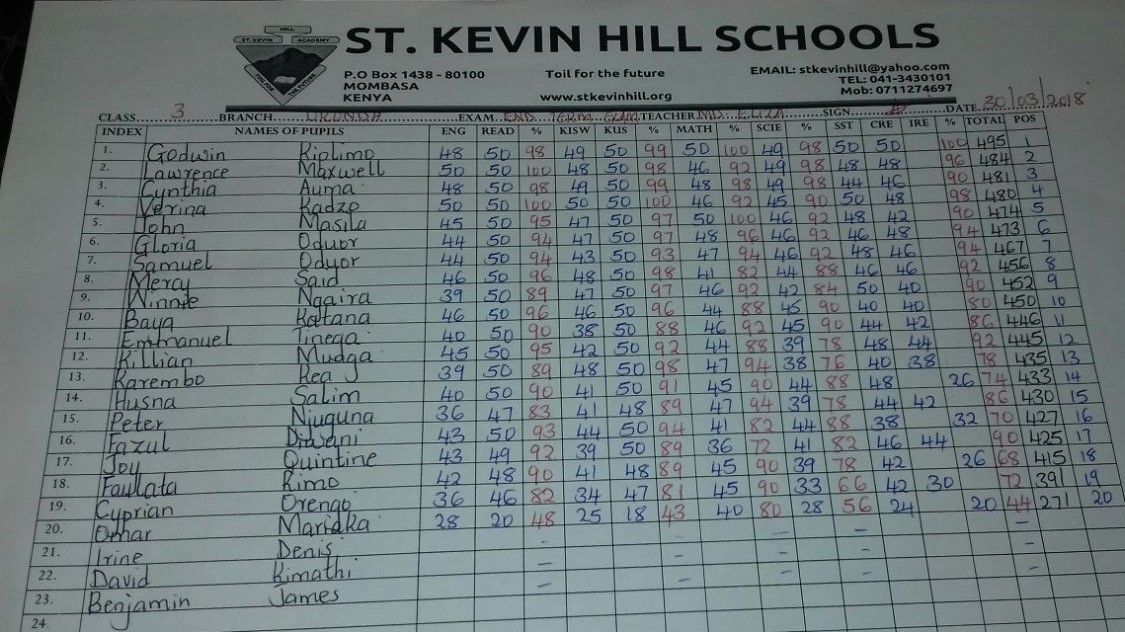 HILL
ST. KEVIN ACADEMY
TOIL FOR THE FUTURE
ST. KEVIN HILL SCHOOLS
P.O Box 1438 - 80100 Toil for the future EMAIL: stkevinhill@yahoo.com
MOMBASA TEL: 041-3430101
KENYA www.stkevinhill.org Mob: 0711274697
CLASS 3 BRANCH EXAM END TERM EXAM TEACHER MD. ELIZA SIGN DATE 30/03/2018
INDEX NAMES OF PUPILS ENG READ % KISW KUS % MATH % SCIE % SST CRE IRE % TOTAL POS
1. Godwin Kiplimo 48 50 98 49 50 99 50 100 49 98 50 50 100 495 1
2. Lawrence Maxwell 50 50 100 48 50 98 46 92 49 98 48 48 96 484 2
3. Cynthia Auma 48 50 98 49 50 99 48 98 49 98 44 46 90 481 3
4. Verina Kadzo 50 50 100 50 50 100 46 92 45 90 50 48 98 480 4
5. John Masila 45 50 95 47 50 97 50 100 46 92 48 42 90 474 5
6. Gloria Oduor 44 50 94 47 50 97 48 96 46 92 46 48 94 473 6
7. Samuel Oduor 44 50 94 43 50 93 47 94 46 92 48 46 94 467 7
8. Mercy Said 46 50 96 48 50 98 41 82 44 88 46 46 92 456 8
9. Winnie Ngaira 39 50 89 47 50 97 46 92 42 84 50 40 90 452 9
10. Baya Katana 46 50 96 46 50 96 44 88 45 90 40 40 80 450 10
11. Emmanuel Tinega 40 50 90 38 50 88 46 92 45 90 44 42 86 446 11
12. Killian Mudga 45 50 95 42 50 92 44 88 39 78 48 44 92 445 12
13. Karembo Kea 39 50 89 48 50 98 47 94 38 76 40 38 78 435 13
14. Husna Salim 40 50 90 41 50 91 45 90 44 88 48 26 74 433 14
15. Peter Njuguna 36 47 83 41 48 89 47 94 39 78 44 42 86 430 15
16. Fazul Diwani 43 50 93 44 50 94 41 82 44 88 38 32 70 427 16
17. Joy Quintine 43 49 92 39 50 89 36 72 41 82 46 44 90 425 17
18. Faulata Kimo 42 48 90 41 48 89 45 90 39 78 42 26 68 415 18
19. Cyprian Orengo 36 46 82 34 47 81 45 90 33 66 42 30 72 391 19
20. Omar 28 20 48 25 18 43 40 80 28 56 24 20 44 271 20
21. Irine Denis – – – – –
22. David Kimathi – – – – –
23. Benjamin James – – – –
24.